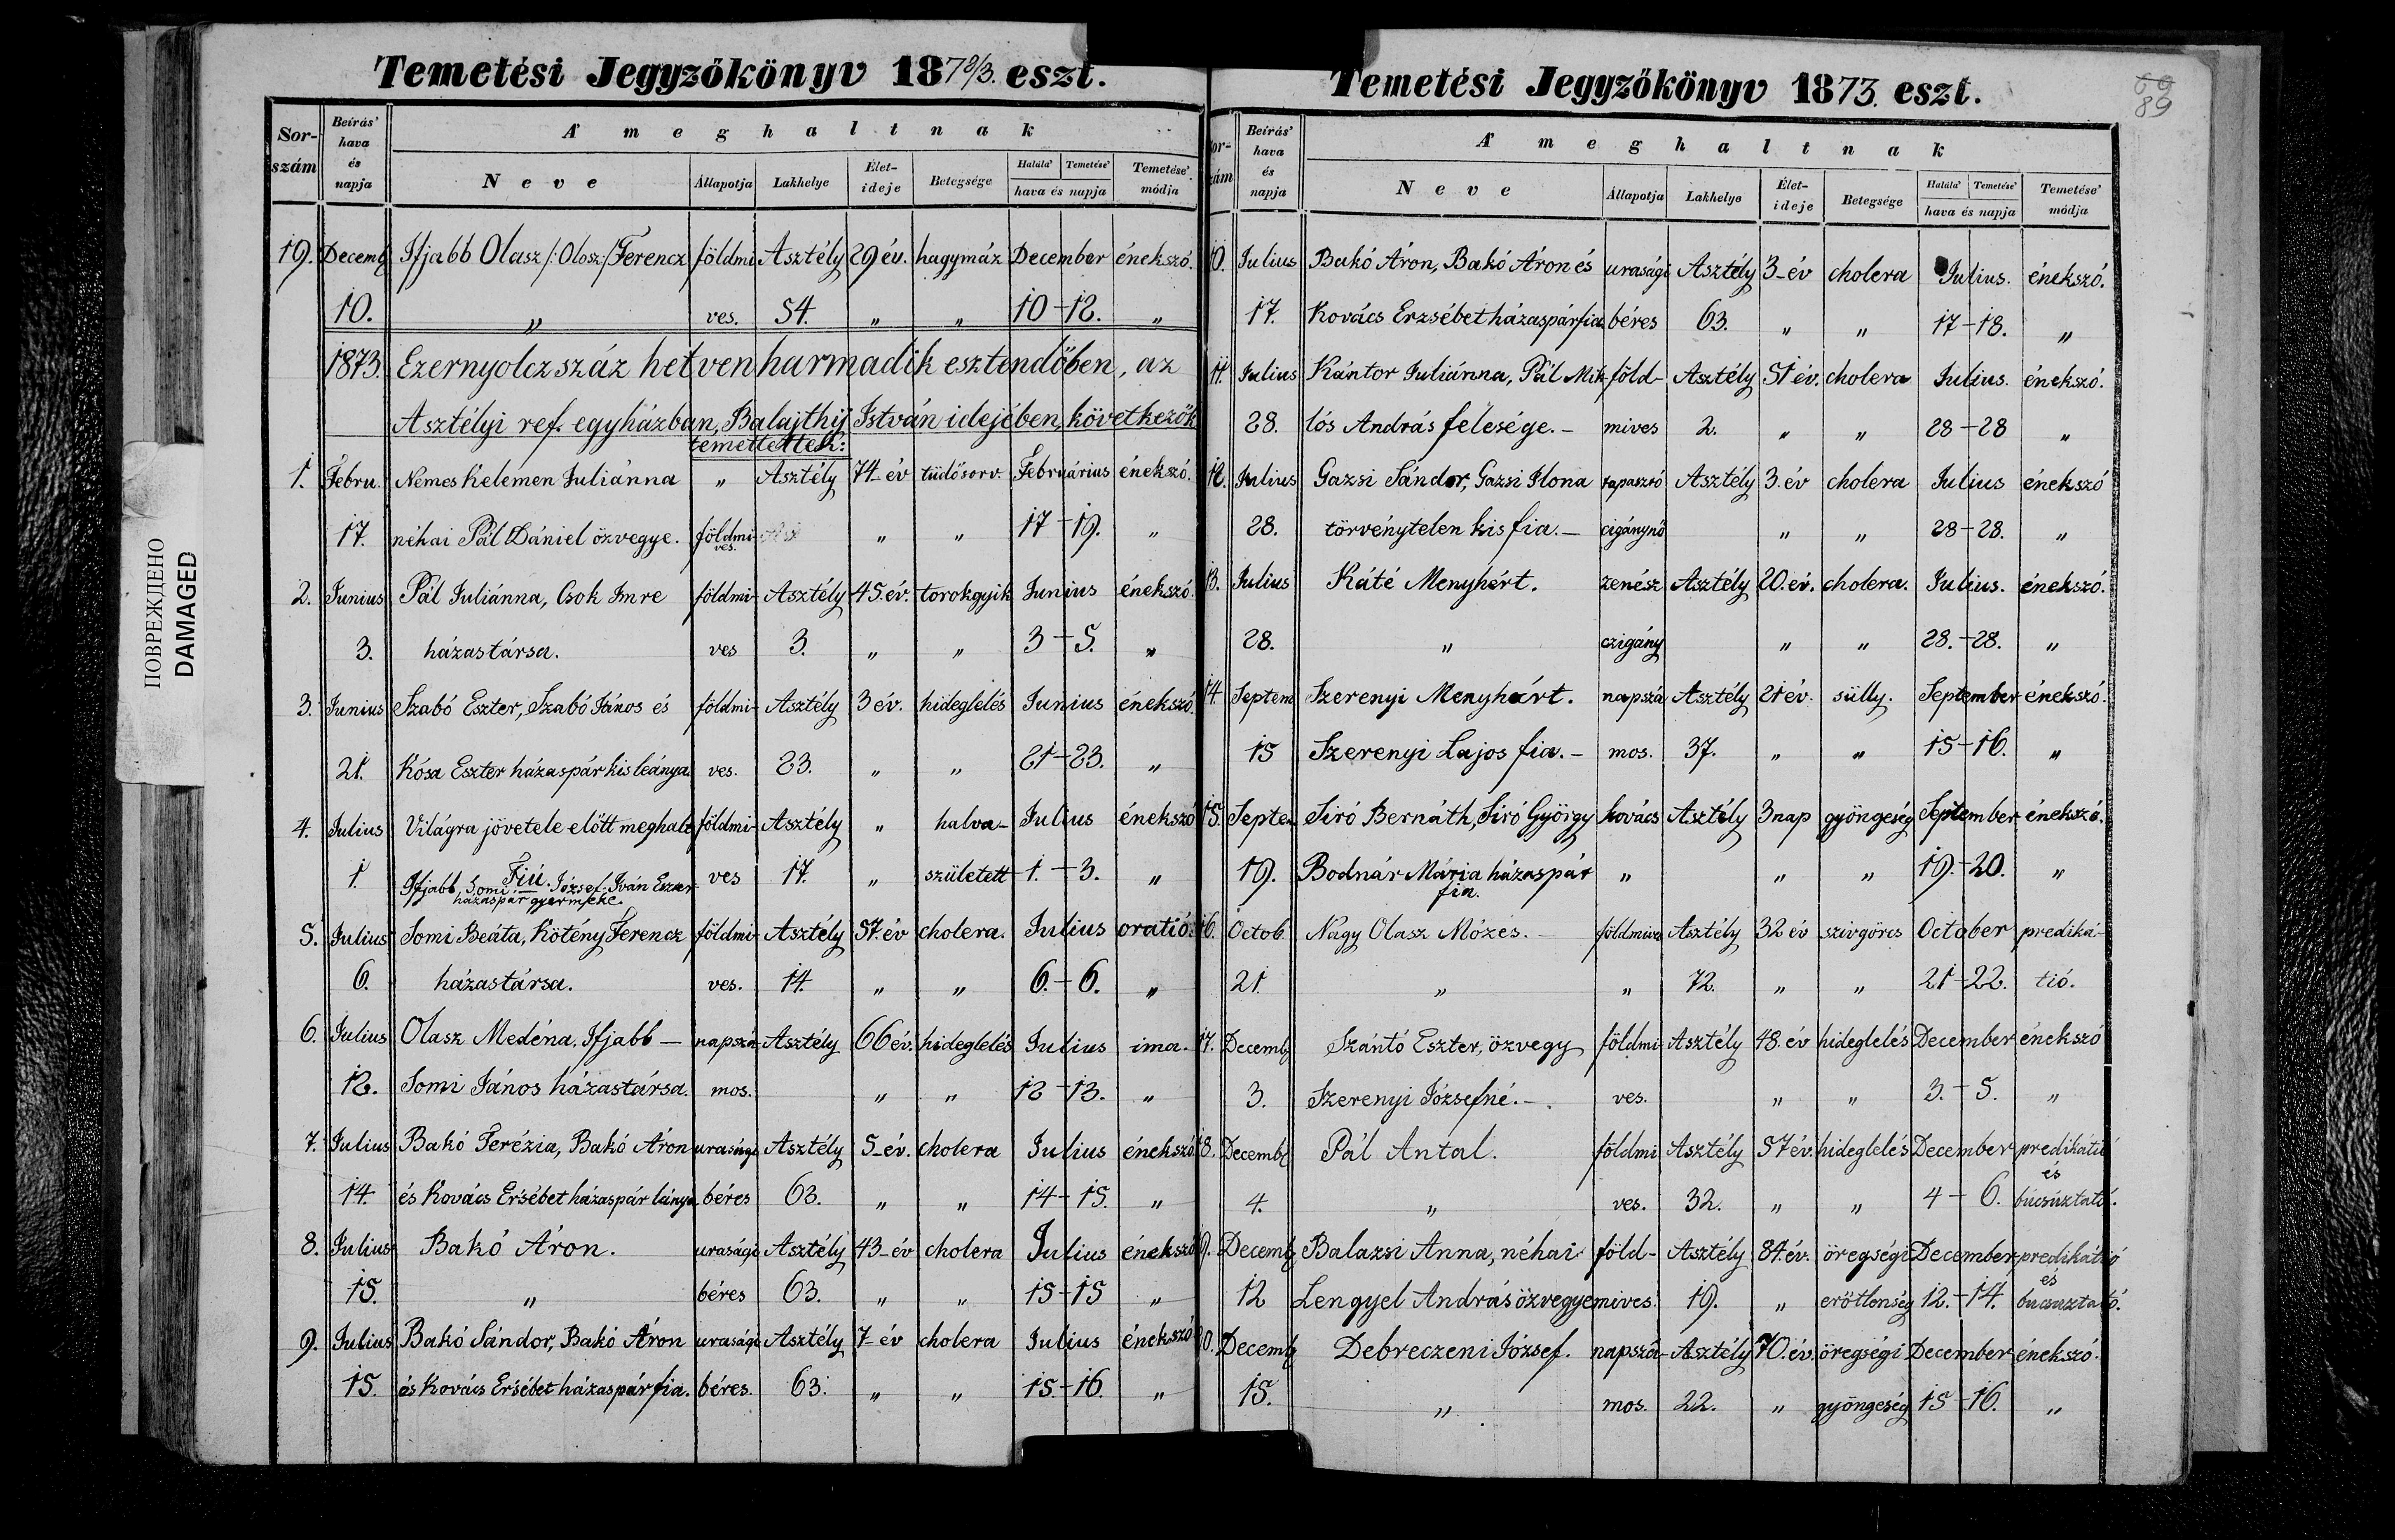 ПОВРЕЖДЕНО
DAMAGED
Temetési Jegyzőkönyv 1872/3. eszt.
Sor-szám Beírás' hava és napja A' meghaltnak
Neve Állapotja Lakhelye Élet-ideje Betegsége Halála' Temetése' hava és napja Temetése' módja
19. Decemb Ifjabb Olasz /:Olosz:/ Ferencz földmi Asztély 29 év. hagymáz December énekszó.
10. " ves. 54. " " 10-12. "
1873. Ezernyolczszáz hetvenharmadik esztendőben, az
Asztélyi ref. egyházban, Balajthij István idejében, következők
temettettek:
1. Febru. Nemes Kelemen Juliánna " Asztély 74 év tüdősorv. Februárius énekszó.
17. néhai Pál Dániel özvegye. földmi- " " 17-19. "
ves.
2. Junius Pál Juliánna, Csok Imre földmi- Asztély 45. év. torokgyik Junius énekszó.
3. házastársa. ves 3. " " 3-5. "
3. Junius Szabó Eszter, Szabó János és földmi- Asztély 3 év. hideglelés Junius énekszó.
21. Kósa Eszter házaspár kis leánya. ves. 23. " " 21-23. "
4. Julius Világra jövetele előtt meghalt földmi- Asztély " halva- Julius énekszó
1. Fiú. ves 17. " született 1.-3. "
Ifjabb Somi József Iván Eszter
házaspár gyermeke.
5. Julius Somi Beáta, Kötény Ferencz földmi- Asztély 57. év cholera. Julius oratió.
6. házastársa. ves. 14. " " 6.-6. "
6. Julius Olasz Medéna, Ifjabb - napszá- Asztély 66 év. hideglelés Julius ima.
12. Somi János házastársa. mos. " " 12-13. "
7. Julius Bakó Terézia, Bakó Áron urasági Asztély 5-év. cholera Julius énekszó.
14. és Kovács Ersébet házaspár lánya béres 63. " " 14-15. "
8. Julius Bakó Áron. urasági Asztély 43-év cholera Julius énekszó
15. " béres 63. " " 15-15 "
9. Julius Bakó Sándor, Bakó Áron urasági Asztély 7-év cholera Julius énekszó
15. és Kovács Ersébet házaspár fia. béres. 63. " " 15.-16. "
Temetési Jegyzőkönyv 1873. eszt.
89
Beírás' hava és napja A' meghaltnak
Neve Állapotja Lakhelye Élet-ideje Betegsége Halála' Temetése' hava és napja Temetése' módja
10. Julius Bakó Áron, Bakó Áron és urasági Asztély 3-év cholera Julius. énekszó.
17. Kovács Erzsébet házaspár fia. béres 63. " " 17-18. "
11. Julius Kántor Juliánna, Pál Mik- föld- Asztély 51 év. cholera Julius. énekszó.
28. lós András felesége. - mives 2. " " 28-28 "
12. Julius Gazsi Sándor, Gazsi Ilona tapasztó Asztély 3. év cholera Julius énekszó
28. törvénytelen kis fia. - cigánynő " " 28-28. "
13. Julius Káté Menyhért. zenész Asztély 20. év. cholera. Julius. énekszó.
28. " czigány " " 28.-28. "
14. Septem Szerenyi Menyhárt. napszá Asztély 21 év. sülly. September énekszó.
15 Szerenyi Lajos fia. - mos. 37. " " 15-16. "
15. Septem Siró Bernáth, Siró György kovács Asztély 3 nap gyöngeség September énekszó.
19. Bodnár Mária házaspár " " " 19.-20. "
fia.
16. Octob. Nagy Olasz Mózes. földmives Asztély 32 év szivgörcs October prediká-
21. " " 72. " " 21-22. tió.
17. Decemb Szántó Eszter, özvegy földmi- Asztély 48. év hideglelés December énekszó
3. Szerenyi Józsefné. -. ves. " " 3.-5. "
18. Decemb Pál Antal. földmi Asztély 57 év. hideglelés December predikátió
és
4. " ves. 32. " " 4-6. bucsuztató.
19. Decemb Balazsi Anna, néhai föld- Asztély 84. év. öregségi December predikátió
és
12 Lengyel András özvegye mives. 19. " erőtlenség 12.-14. bucsuztató.
20. Decemb Debreczeni József. napszá- Asztély 70. év. öregségi December énekszó.
15. " mos. 22. " gyöngeség 15-16. "